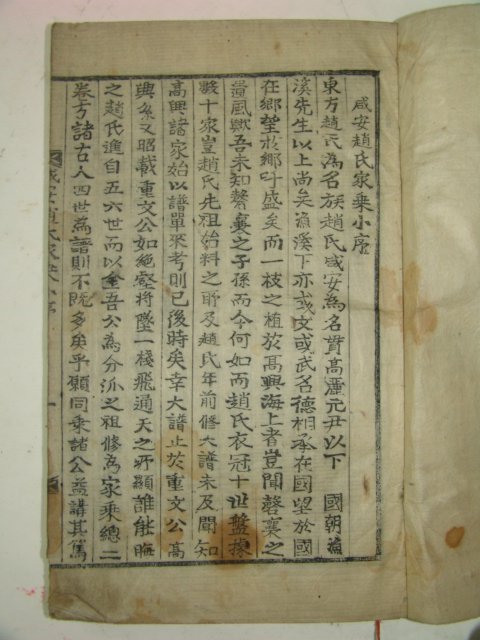 咸安趙氏家乘小序
東方趙氏爲名族趙氏咸安爲名貫高麗元尹以下 國朝漁
溪先生以上尚矣漁溪下亦或文或武名德相承在國望於國
在鄕望於鄕吁盛矣而一枝之植於高興海上者豈聞磬襄之
遺風歟吾未知磬襄之子孫而今何如而趙氏衣冠十世盤據
數十家豈趙氏先祖始料之所及趙氏年前修大譜未及聞知
高興諸家始以譜單來考則已後時矣幸大譜止於重文公高
興系又昭載重文公如絶壑將墜一棧飛通天之所顯誰能晦
之趙氏進自五六世而以金吾公爲分派之祖修爲家乘總二
卷方諸古人四世爲譜則不旣多矣乎願同乘諸公益講其篤
咸安趙氏家乘小序 一